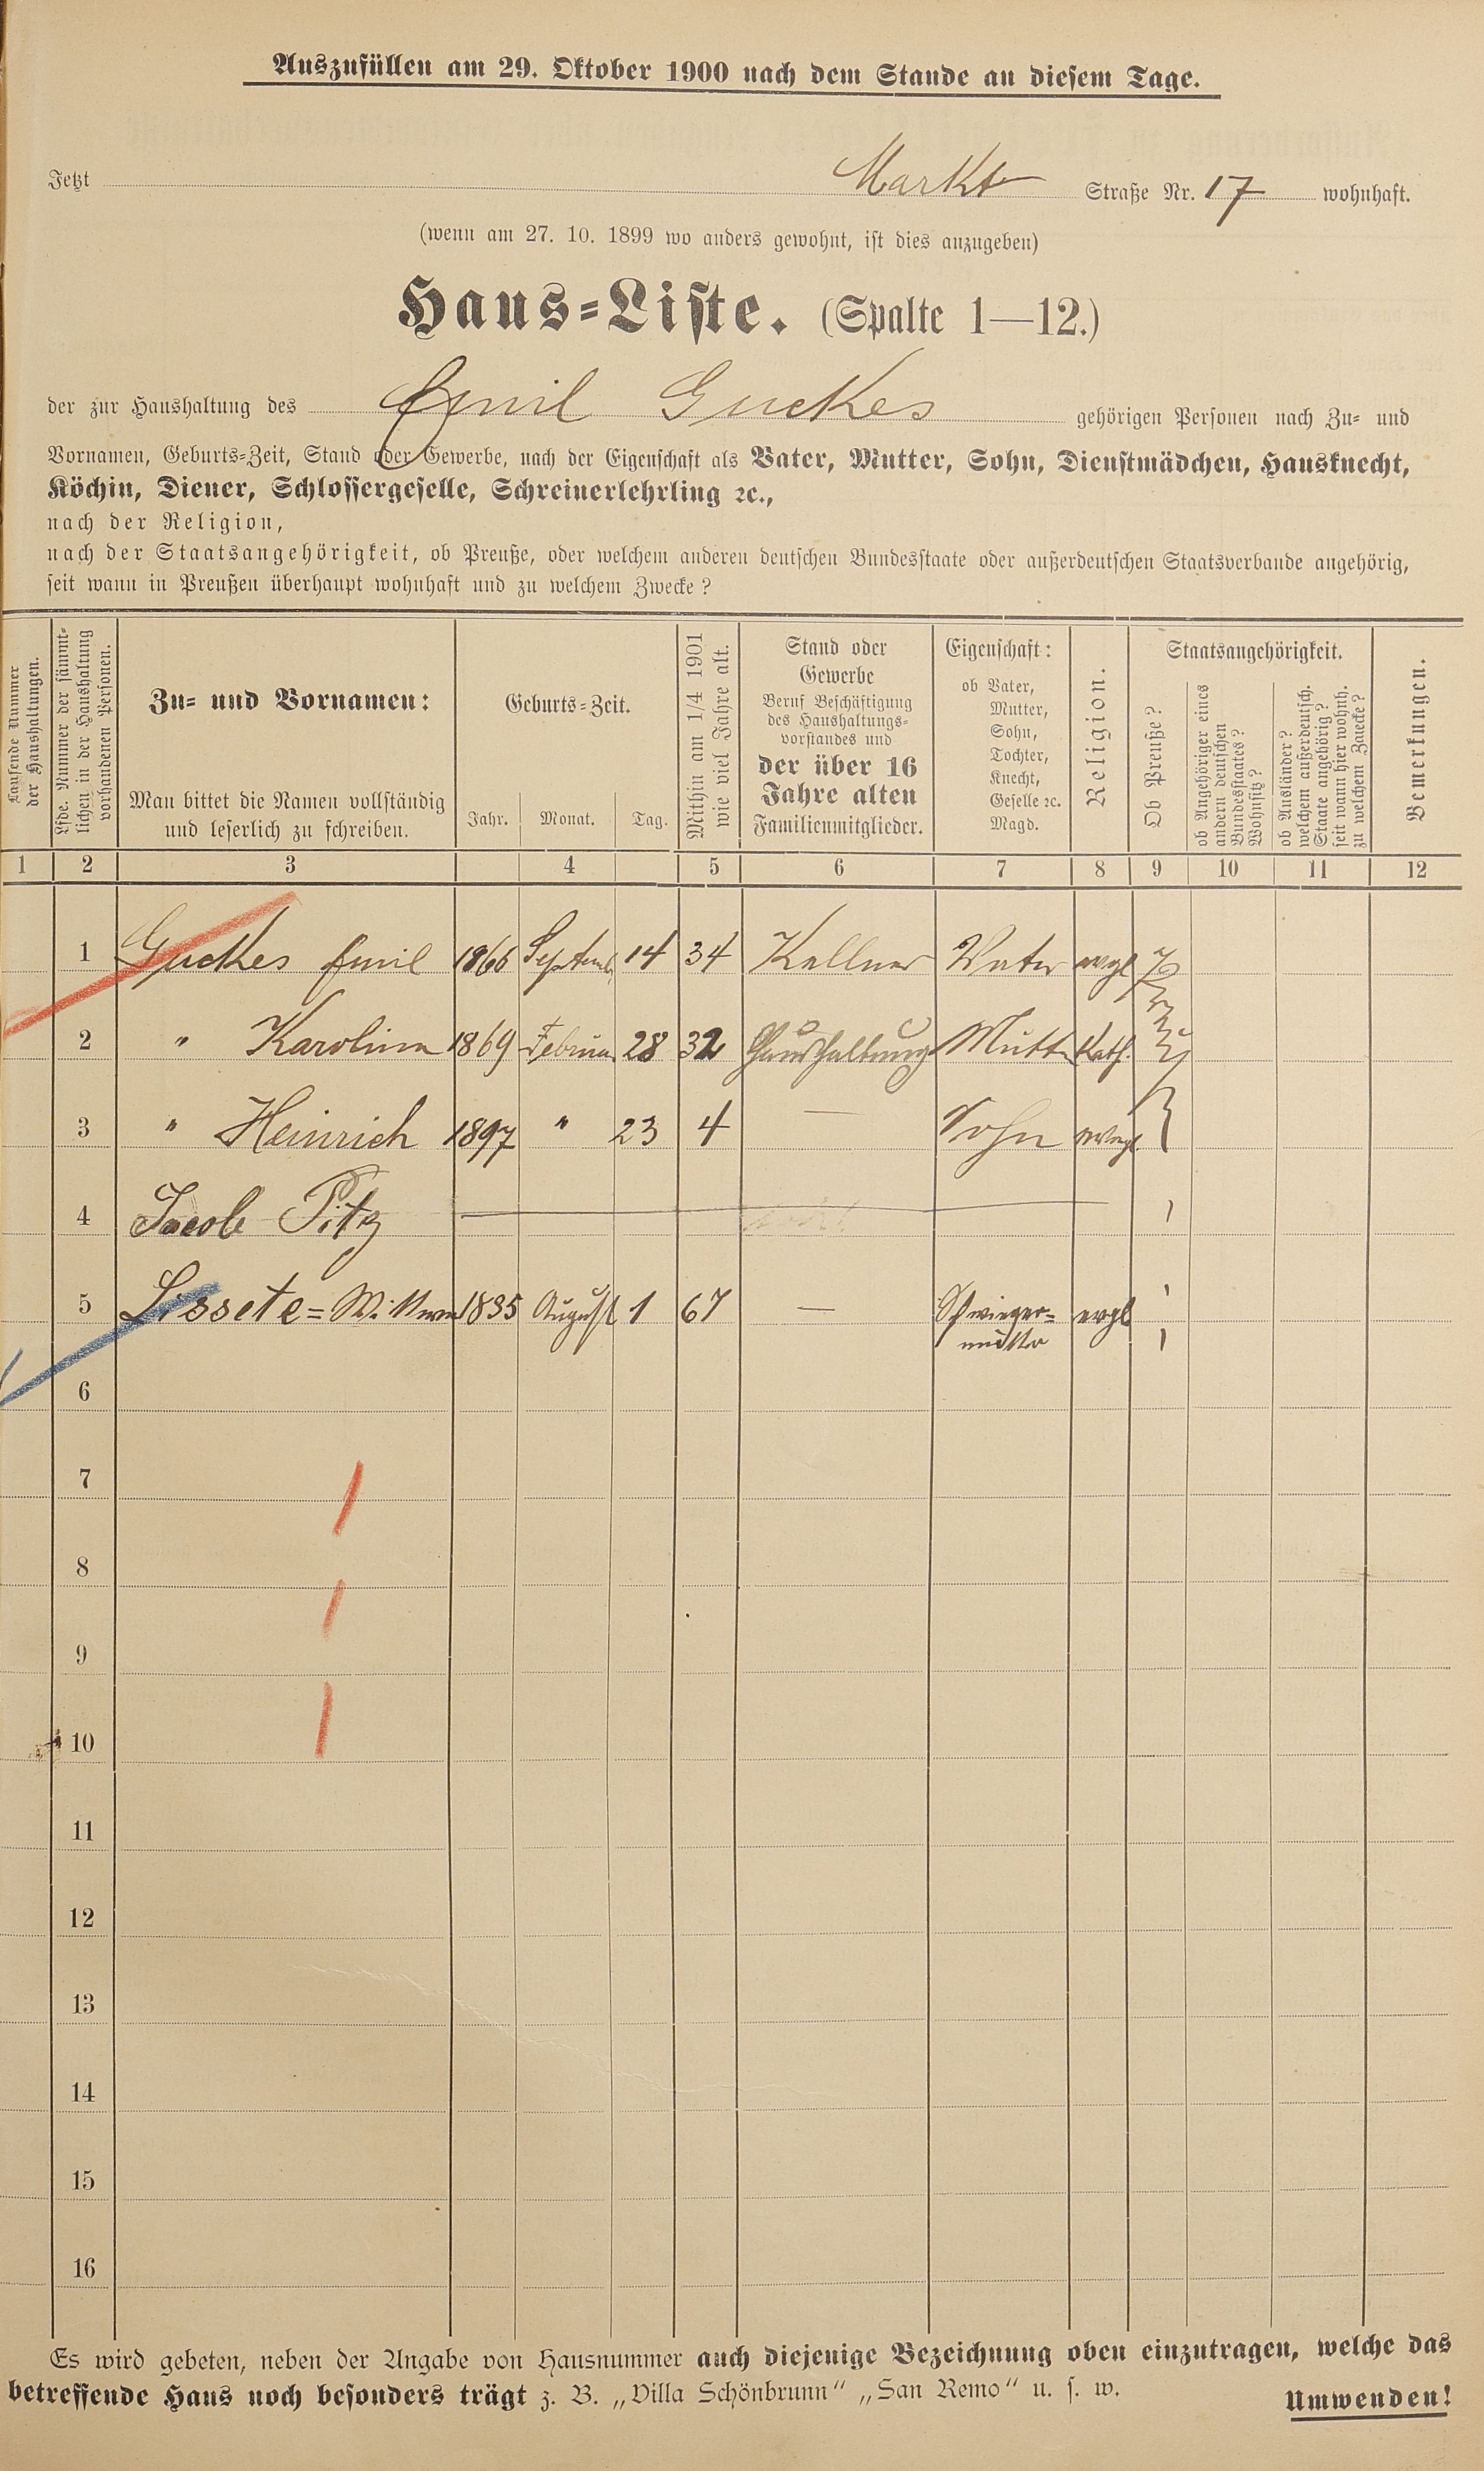 Auszufüllen am 29. Oktober 1900 nach dem Stande an diesem Tage.
Jetzt Markt Straße Nr. 17 wohnhaft.
(wenn am 27. 10. 1899 wo anders gewohnt, ist dies anzugeben)
Haus-Liste. (Spalte 1—12.)
der zur Haushaltung des Emil Guckes gehörigen Personen nach Zu- und
Vornamen, Geburts-Zeit, Stand oder Gewerbe, nach der Eigenschaft als Vater, Mutter, Sohn, Dienstmädchen, Hausknecht,
Köchin, Diener, Schlossergeselle, Schreinerlehrling ꝛc.,
nach der Religion,
nach der Staatsangehörigkeit, ob Preuße, oder welchem anderen deutschen Bundesstaate oder außerdeutschen Staatsverbande angehörig,
seit wann in Preußen überhaupt wohnhaft und zu welchem Zwecke?
Laufende Nummer
der Haushaltungen.
Lfde. Nummer der sämmt-
lichen in der Haushaltung
vorhandenen Personen.
Zu- und Vornamen:
Man bittet die Namen vollständig
und leserlich zu schreiben.
Geburts-Zeit.
Jahr. Monat. Tag.
Mithin am 1/4 1901
wie viel Jahre alt.
Stand oder
Gewerbe
Beruf Beschäftigung
des Haushaltungs-
vorstandes und
der über 16
Jahre alten
Familienmitglieder.
Eigenschaft:
ob Vater,
Mutter,
Sohn,
Tochter,
Knecht,
Geselle ꝛc.
Magd.
Religion.
Staatsangehörigkeit.
Ob Preuße?
ob Angehöriger eines
andern deutschen
Bundesstaates?
Wohnsitz?
ob Ausländer?
welchem außerdeutsch.
Staate angehörig?
seit wann hier wohnh.
zu welchem Zwecke?
Bemerkungen.
1 2 3 4 5 6 7 8 9 10 11 12
1 Guckes Emil 1866 Septemb. 14 34 Kellner Vater evgl
2 " Karolina 1869 Februar 28 32 Haushaltung Mutter Kath.
3 " Heinrich 1897 " 23 4 — Sohn evgl
4 Jacob Pitz
5 Lissete = Wittwe 1835 August 1 67 — Schwieger=
mutter evgl
6
7
8
9
10
11
12
13
14
15
16
Es wird gebeten, neben der Angabe von Hausnummer auch diejenige Bezeichnung oben einzutragen, welche das
betreffende Haus noch besonders trägt z. B. „Villa Schönbrunn“ „San Remo“ u. s. w.
Umwenden!